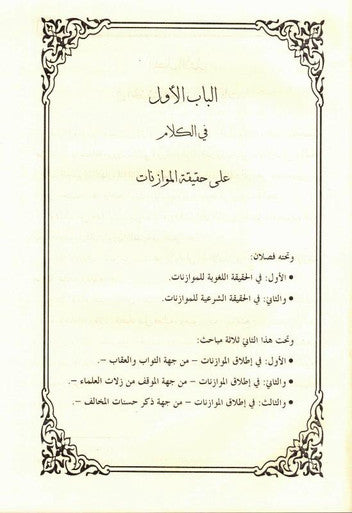 الباب الأول
في الكلام
على حقيقة الموازنات
وتحته فصلان:
● الأول: في الحقيقة اللغوية للموازنات.
● والثاني: في الحقيقة الشرعية للموازنات.
وتحت هذا الثاني ثلاثة مباحث:
● الأول: في إطلاق الموازنات – من جهة الثواب والعقاب –.
● والثاني: في إطلاق الموازنات – من جهة الموقف من زلات العلماء –.
● والثالث: في إطلاق الموازنات – من جهة ذكر حسنات المخالف –.